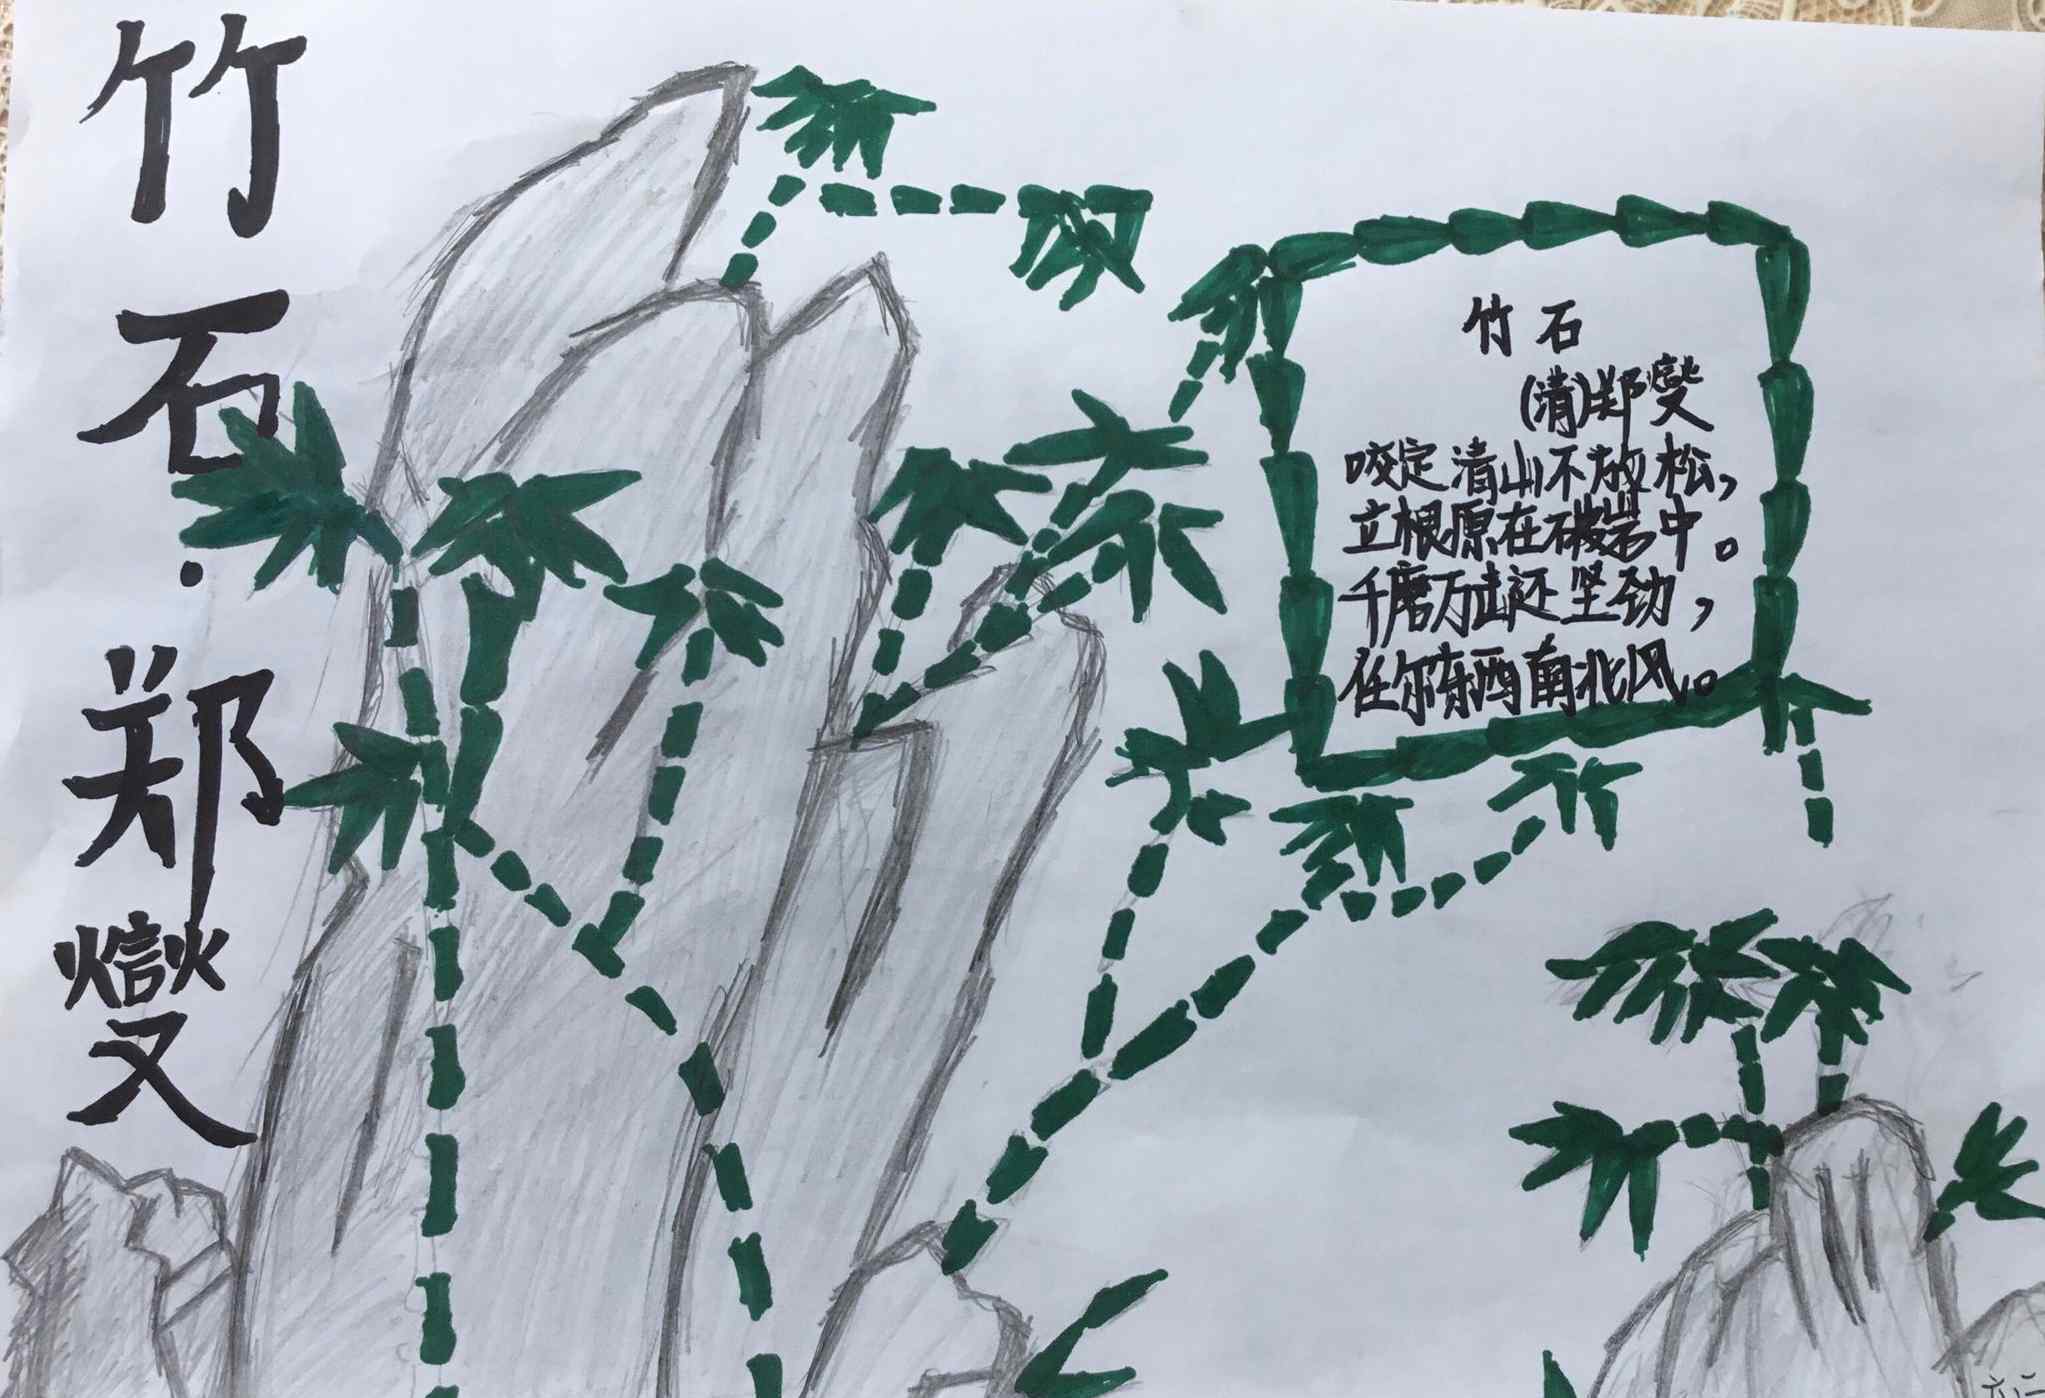 竹石·郑燮
竹石
(清)郑燮
咬定清山不放松,
立根原在破岩中。
千磨万击还坚劲,
任尔东西南北风。